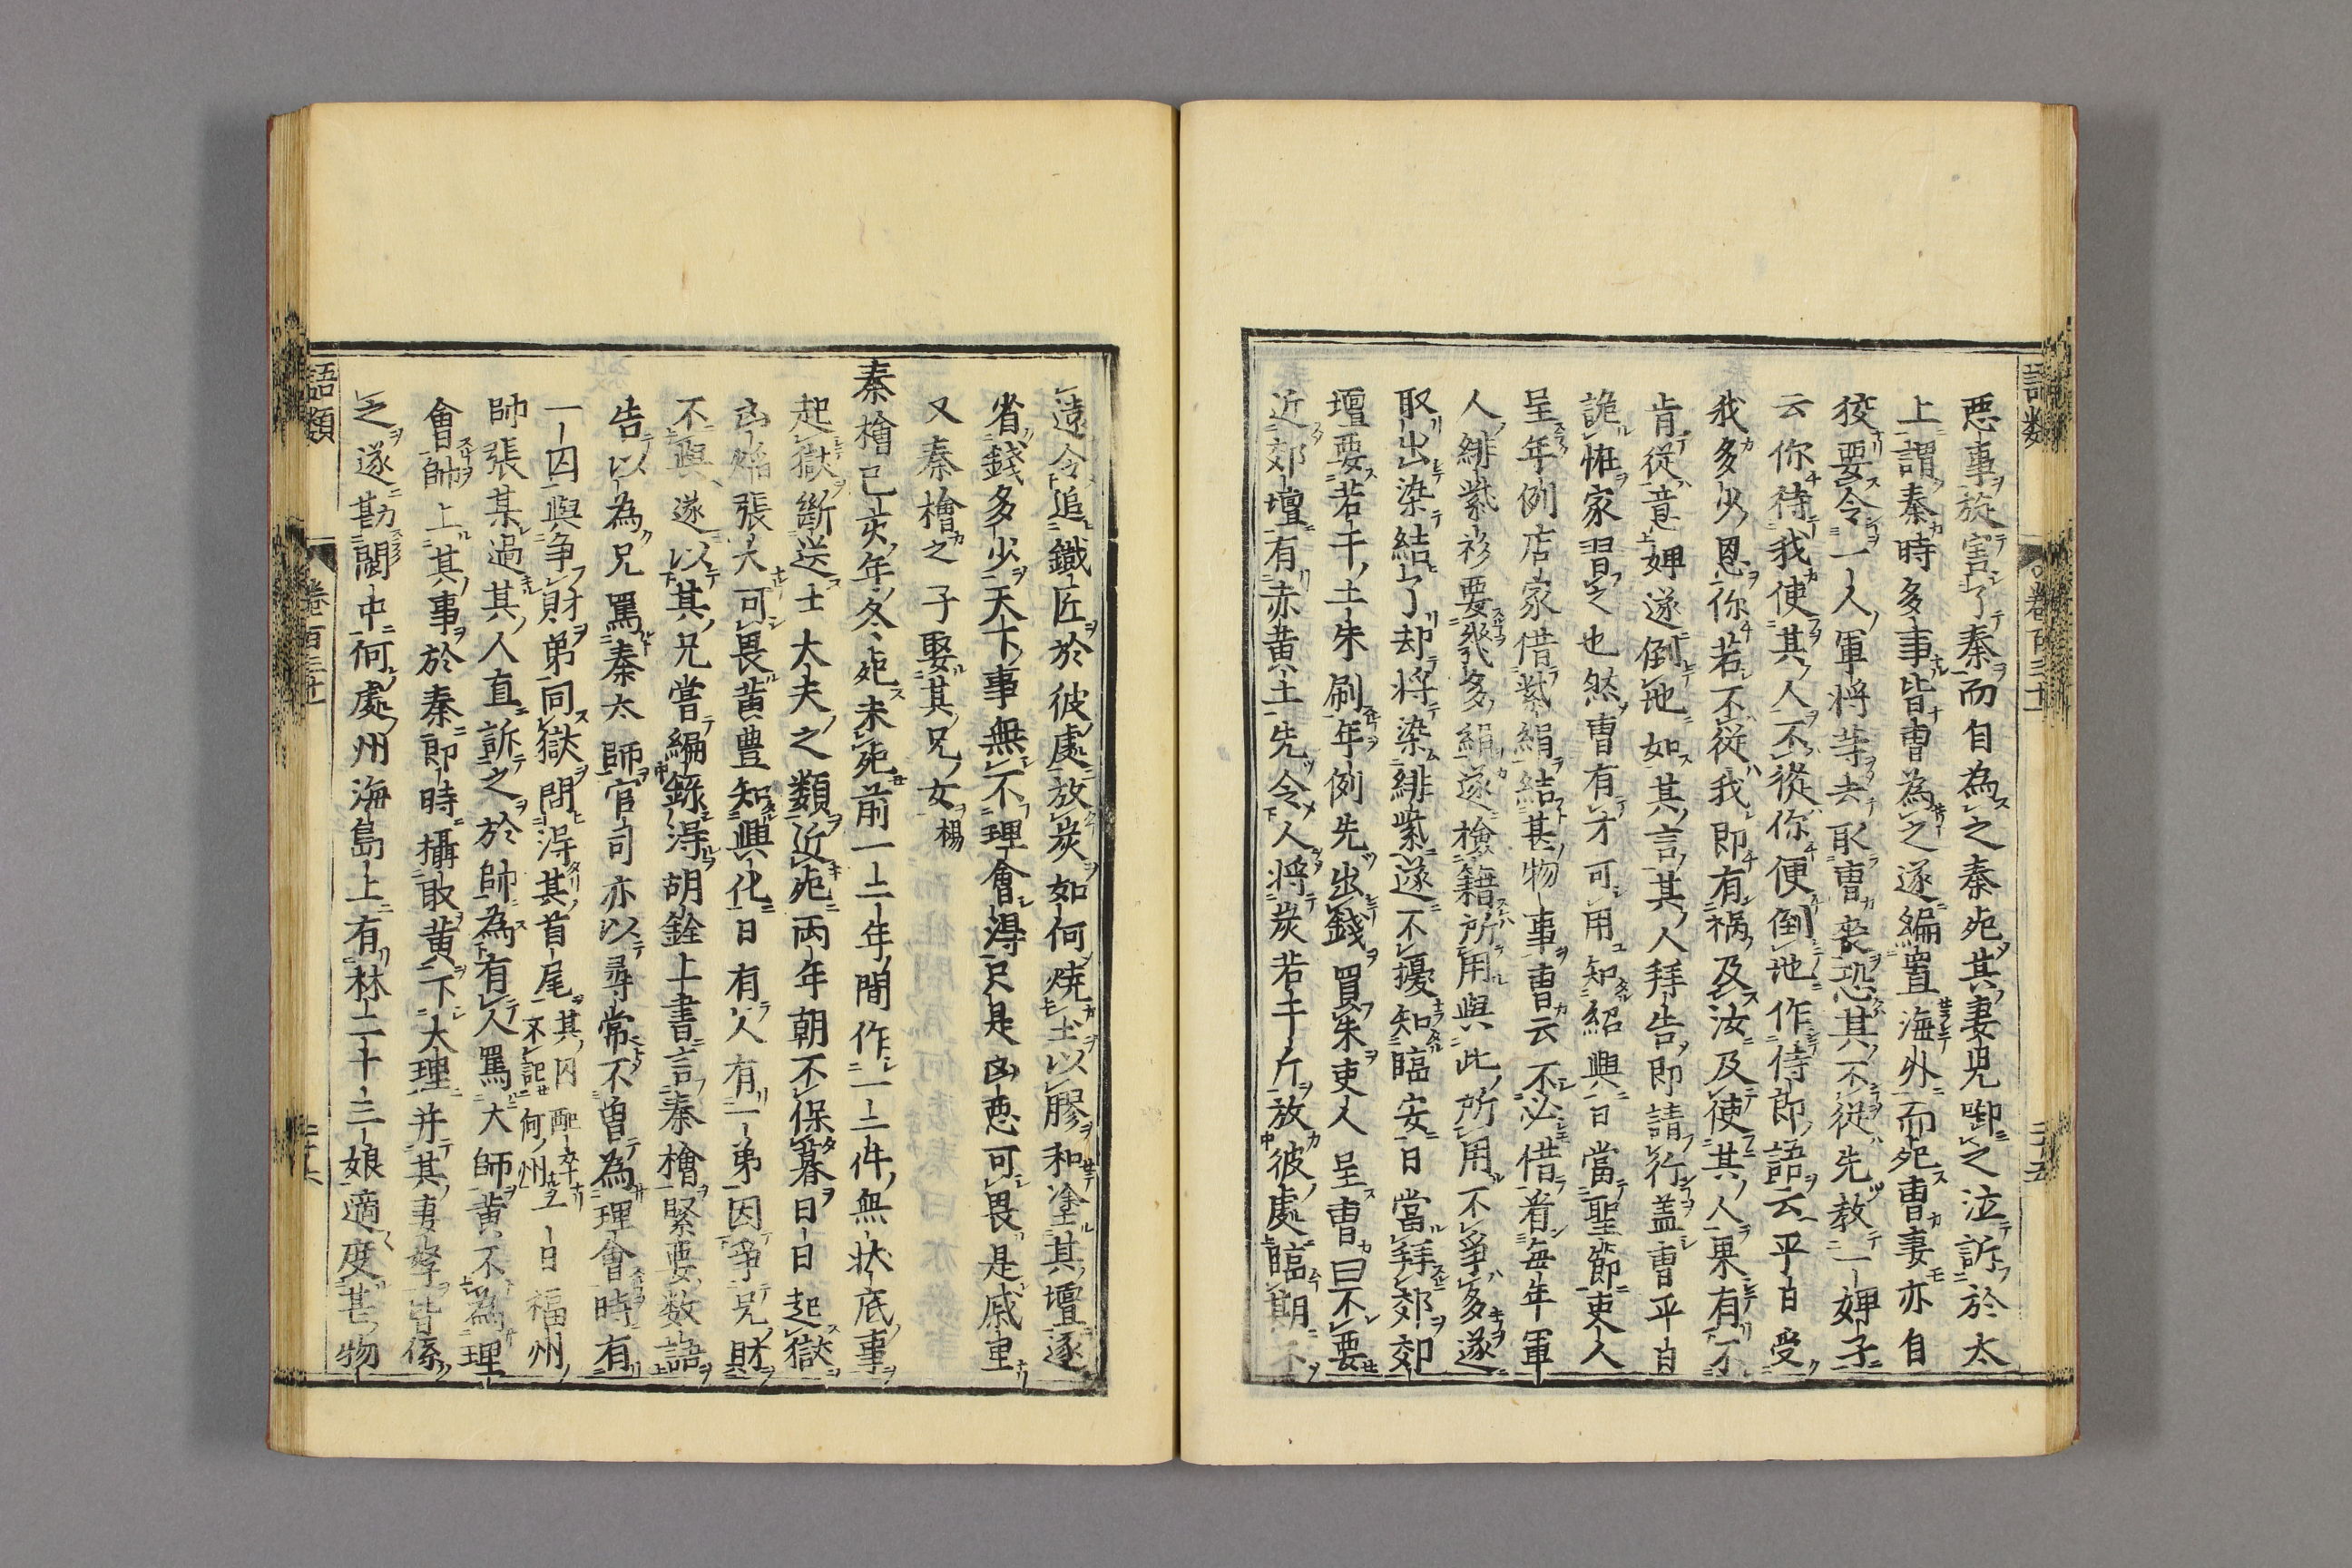 惡事旋害了秦而自為之秦死其妻兒啣之泣訴於太
上謂秦時多事皆曹為之遂編置海外而死曹妻亦自
狡要令一人軍將等去取曹喪恐其不從先教一婢子
云你待我使其人不從你便倒地作侍郎語云平日受
我多少恩你若不從我即有禍及汝及使其人果有不
肯從意婢遂倒地如其言其人拜告即請行蓋曹平日
詭怪家習之也然曹有才可用知紹興日當聖節吏人
呈年例店家借紫絹結甚物事曹云不必借着每年軍
人緋紫衫要幾多絹遂檢籍所用與此所用不爭多遂
取出染結了却將染緋紫遂不擾知臨安日當拜郊郊
壇要若干土朱刷年例先出錢買朱吏人呈曹曰不要
近郊壇有赤黃土先令人將炭若干斤放彼處臨期不
遠令追鐵匠於彼處放炭如何燒土以膠和塗其壇遂
省錢多少天下事無不理會得只是凶惡可畏是戚里
又秦檜之子娶其兄女 楊
秦檜己亥年冬死未死前一二年間作一二件無狀底事
起獄斷送士大夫之類近死兩年朝不保暮日日起獄
凶熖張大可畏黃豊知興化日有人有一弟因爭兄財
不與遂以其兄嘗編錄得胡銓上書言秦檜緊要数語
告以為兄罵秦太師官司亦以尋常不曾為理會時有
一囚與争財弟同獄問得其首尾 其囚配卒不記何州 一日福州
帥張某過其人直訴之於帥為有人罵大師黃不為理
會帥上其事於秦即時攝取黃下大理并其妻孥皆係
之遂勘閩中何處州海島上有林二十三娘適度甚物
語類
卷百三十一
二十六